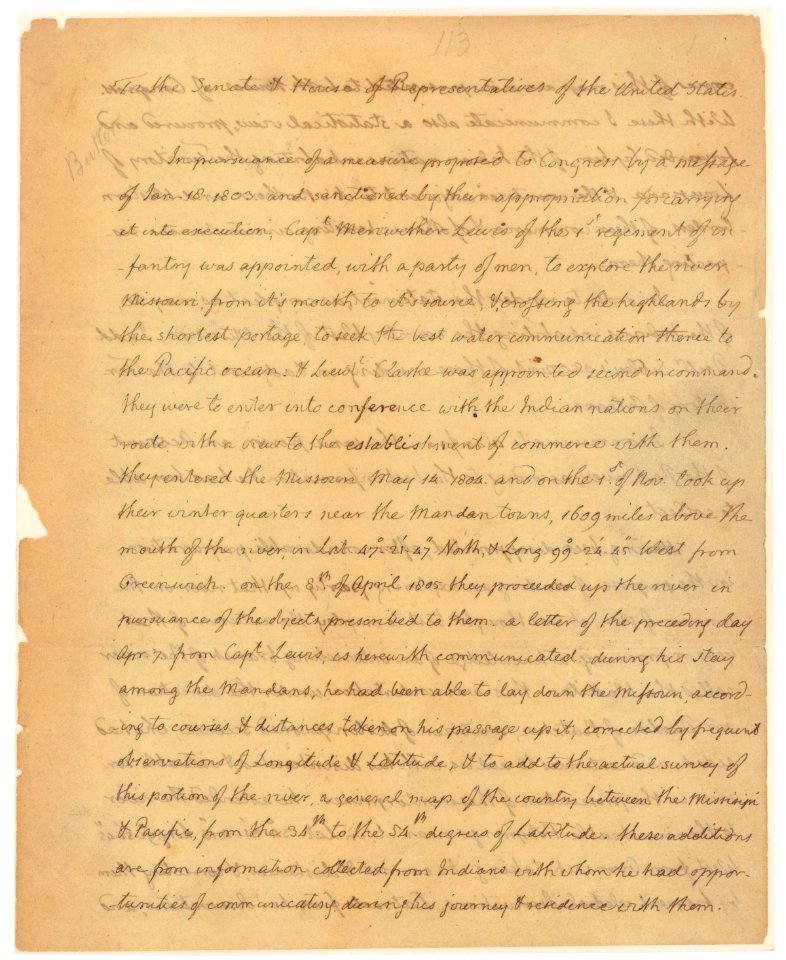 113
To the Senate & House of Representatives of the United States.
In pursuance of a measure proposed to Congress by a message
of Jan. 18. 1803. and sanctioned by their appropriation for carrying
it into execution, Capt. Meriwether Lewis of the 1st regiment of in-
-fantry was appointed, with a party of men, to explore the river
Missouri, from it's mouth to it's source, & crossing the highlands by
the shortest portage, to seek the best water communication thence to
the Pacific ocean. & Lieut. Clarke was appointed second in command.
they were to enter into conference with the Indian nations on their
route with a view to the establishment of commerce with them.
they entered the Missouri May 14. 1804. and on the 1st of Nov. took up
their winter quarters near the Mandan towns, 1609 miles above the
mouth of the river, in Lat. 47° 21' 47" North, & Long. 99° 24' 45" West from
Greenwich. on the 8th of April 1805. they proceeded up the river in
pursuance of the objects prescribed to them. a letter of the preceding day
Apr. 7. from Capt. Lewis, is herewith communicated. during his stay
among the Mandans, he had been able to lay down the Missouri, accord-
-ing to courses & distances taken on his passage up it, corrected by frequent
observations of Longitude & Latitude; & to add to the actual survey of
this portion of the river, a general map of the country between the Missisipi
& Pacific, from the 34th to the 54th degrees of Latitude. these additions
are from information collected from Indians with whom he had oppor-
-tunities of communicating during his journey & residence with them.